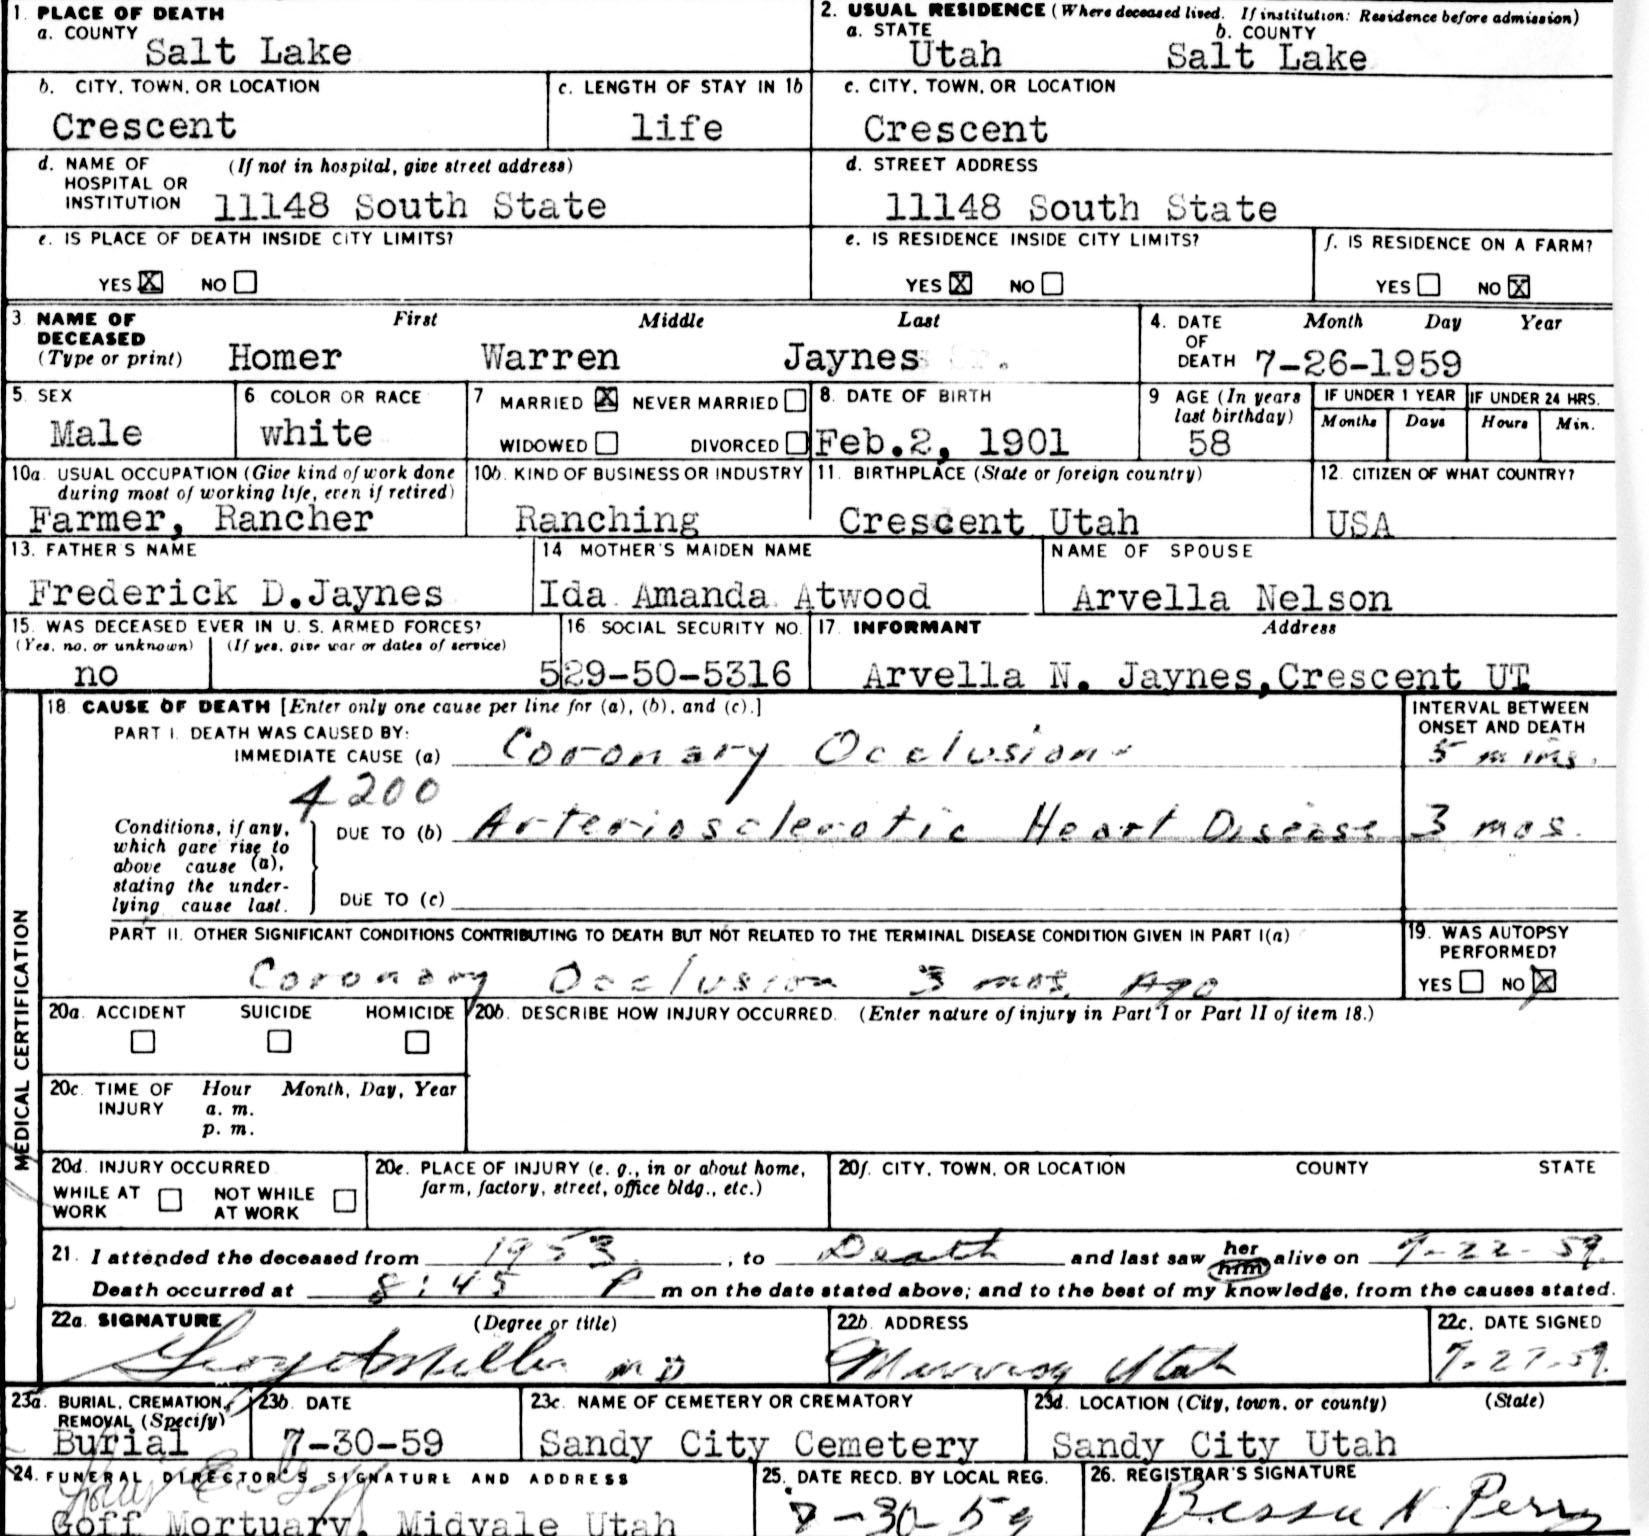 1. PLACE OF DEATH
a. COUNTY
Salt Lake
2. USUAL RESIDENCE (Where deceased lived. If institution: Residence before admission)
a. STATE b. COUNTY
Utah Salt Lake
b. CITY, TOWN, OR LOCATION
Crescent
c. LENGTH OF STAY IN 1b
life
c. CITY, TOWN, OR LOCATION
Crescent
d. NAME OF (If not in hospital, give street address)
HOSPITAL OR
INSTITUTION 11148 South State
d. STREET ADDRESS
11148 South State
e. IS PLACE OF DEATH INSIDE CITY LIMITS?
YES X NO
e. IS RESIDENCE INSIDE CITY LIMITS?
YES X NO
f. IS RESIDENCE ON A FARM?
YES NO X
3. NAME OF First Middle Last
DECEASED
(Type or print) Homer Warren Jaynes
4. DATE Month Day Year
OF
DEATH 7-26-1959
5. SEX
Male
6 COLOR OR RACE
white
7 MARRIED X NEVER MARRIED
WIDOWED DIVORCED
8. DATE OF BIRTH
Feb.2, 1901
9 AGE (In years
last birthday)
58
IF UNDER 1 YEAR
Months Days
IF UNDER 24 HRS.
Hours Min.
10a. USUAL OCCUPATION (Give kind of work done
during most of working life, even if retired)
Farmer, Rancher
10b. KIND OF BUSINESS OR INDUSTRY
Ranching
11. BIRTHPLACE (State or foreign country)
Crescent Utah
12. CITIZEN OF WHAT COUNTRY?
USA
13. FATHER'S NAME
Frederick D.Jaynes
14 MOTHER'S MAIDEN NAME
Ida Amanda Atwood
NAME OF SPOUSE
Arvella Nelson
15. WAS DECEASED EVER IN U. S. ARMED FORCES?
(Yes, no, or unknown) (If yes, give war or dates of service)
no
16. SOCIAL SECURITY NO.
529-50-5316
17. INFORMANT Address
Arvella N. Jaynes,Crescent UT
MEDICAL CERTIFICATION
18. CAUSE OF DEATH [Enter only one cause per line for (a), (b), and (c).]
PART I. DEATH WAS CAUSED BY:
IMMEDIATE CAUSE (a) Coronary Occlusion
INTERVAL BETWEEN
ONSET AND DEATH
5 mins.
4200
Conditions, if any,
which gave rise to
above cause (a),
stating the under-
lying cause last.
DUE TO (b) Arteriosclerotic Heart Disease 3 mos.
DUE TO (c)
PART II. OTHER SIGNIFICANT CONDITIONS CONTRIBUTING TO DEATH BUT NOT RELATED TO THE TERMINAL DISEASE CONDITION GIVEN IN PART I(a)
Coronary Occlusion 3 mos. Ago
19. WAS AUTOPSY
PERFORMED?
YES NO X
20a. ACCIDENT SUICIDE HOMICIDE
20b. DESCRIBE HOW INJURY OCCURRED. (Enter nature of injury in Part I or Part II of item 18.)
20c. TIME OF Hour Month, Day, Year
INJURY a. m.
p. m.
20d. INJURY OCCURRED
WHILE AT NOT WHILE
WORK AT WORK
20e. PLACE OF INJURY (e. g., in or about home,
farm, factory, street, office bldg., etc.)
20f. CITY, TOWN, OR LOCATION COUNTY STATE
21. I attended the deceased from 1953, to Death and last saw her him alive on 7-22-59.
Death occurred at 8:45 P m on the date stated above; and to the best of my knowledge, from the causes stated.
22a. SIGNATURE (Degree or title)
MD
22b. ADDRESS
Murray Utah
22c. DATE SIGNED
7-27-59.
23a. BURIAL, CREMATION,
REMOVAL (Specify)
Burial
23b. DATE
7-30-59
23c. NAME OF CEMETERY OR CREMATORY
Sandy City Cemetery
23d. LOCATION (City, town, or county) (State)
Sandy City Utah
24. FUNERAL DIRECTOR'S SIGNATURE AND ADDRESS
Goff Mortuary, Midvale Utah
25. DATE RECD. BY LOCAL REG.
7-30-59
26. REGISTRAR'S SIGNATURE
Bessie N. Perry